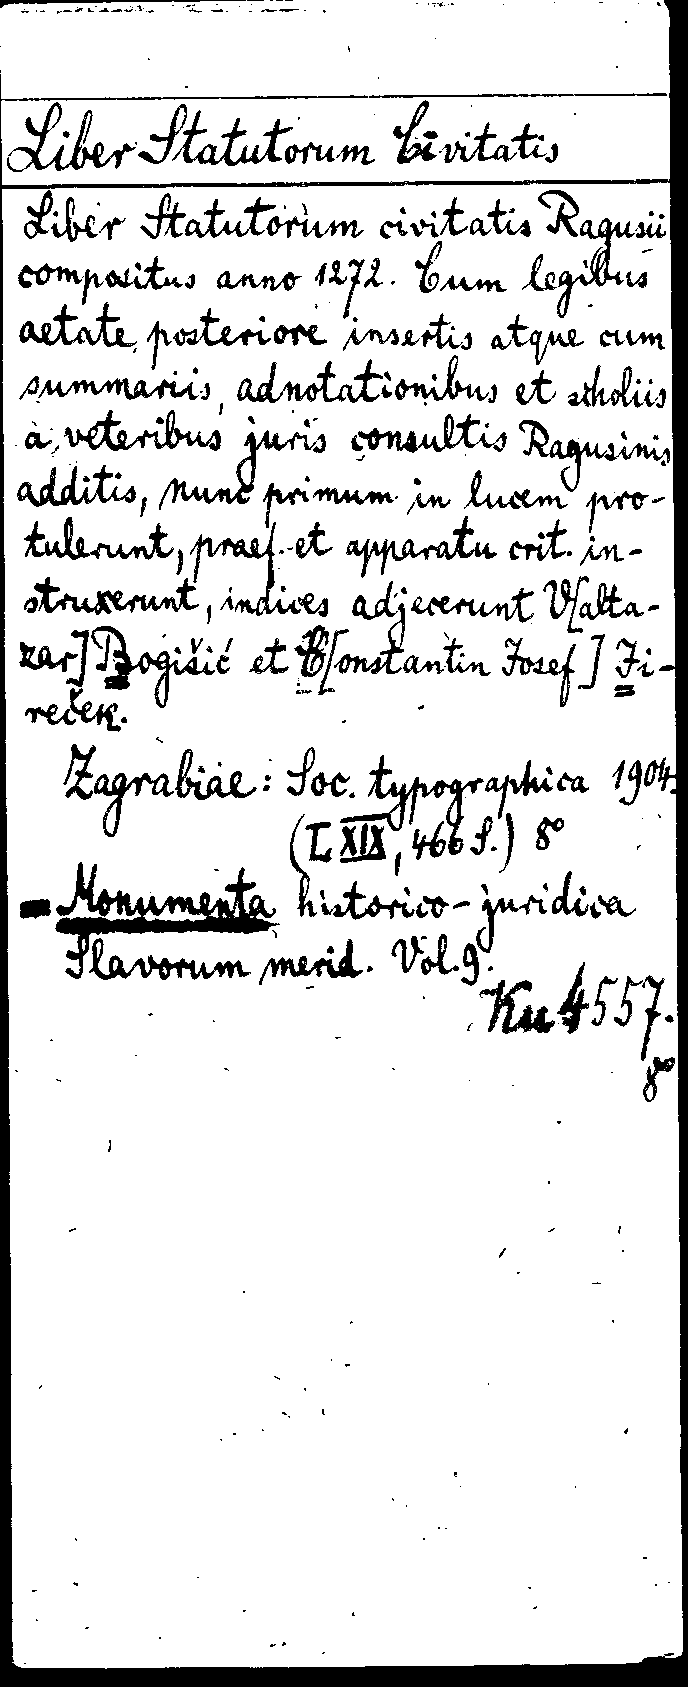 Liber Statutorum Civitatis
Liber Statutorum civitatis Ragusii
compositus anno 1272. Cum legibus
aetate posteriore insertis atque cum
summariis, adnotationibus et scholiis
a veteribus juris consultis Ragusinis
additis, nunc primum in lucem pro-
tulerunt, praef. et apparatu crit. in-
struxerunt, indices adjecerunt V[alta-
zar] Bogišić et C[onstantin Josef] Ji-
reček.
Zagrabiae: Soc. typographica 1904.
(LXIX, 466 S.) 8°
= Monumenta historico-juridica
Slavorum merid. Vol. 9.
Ku 4557.
8°